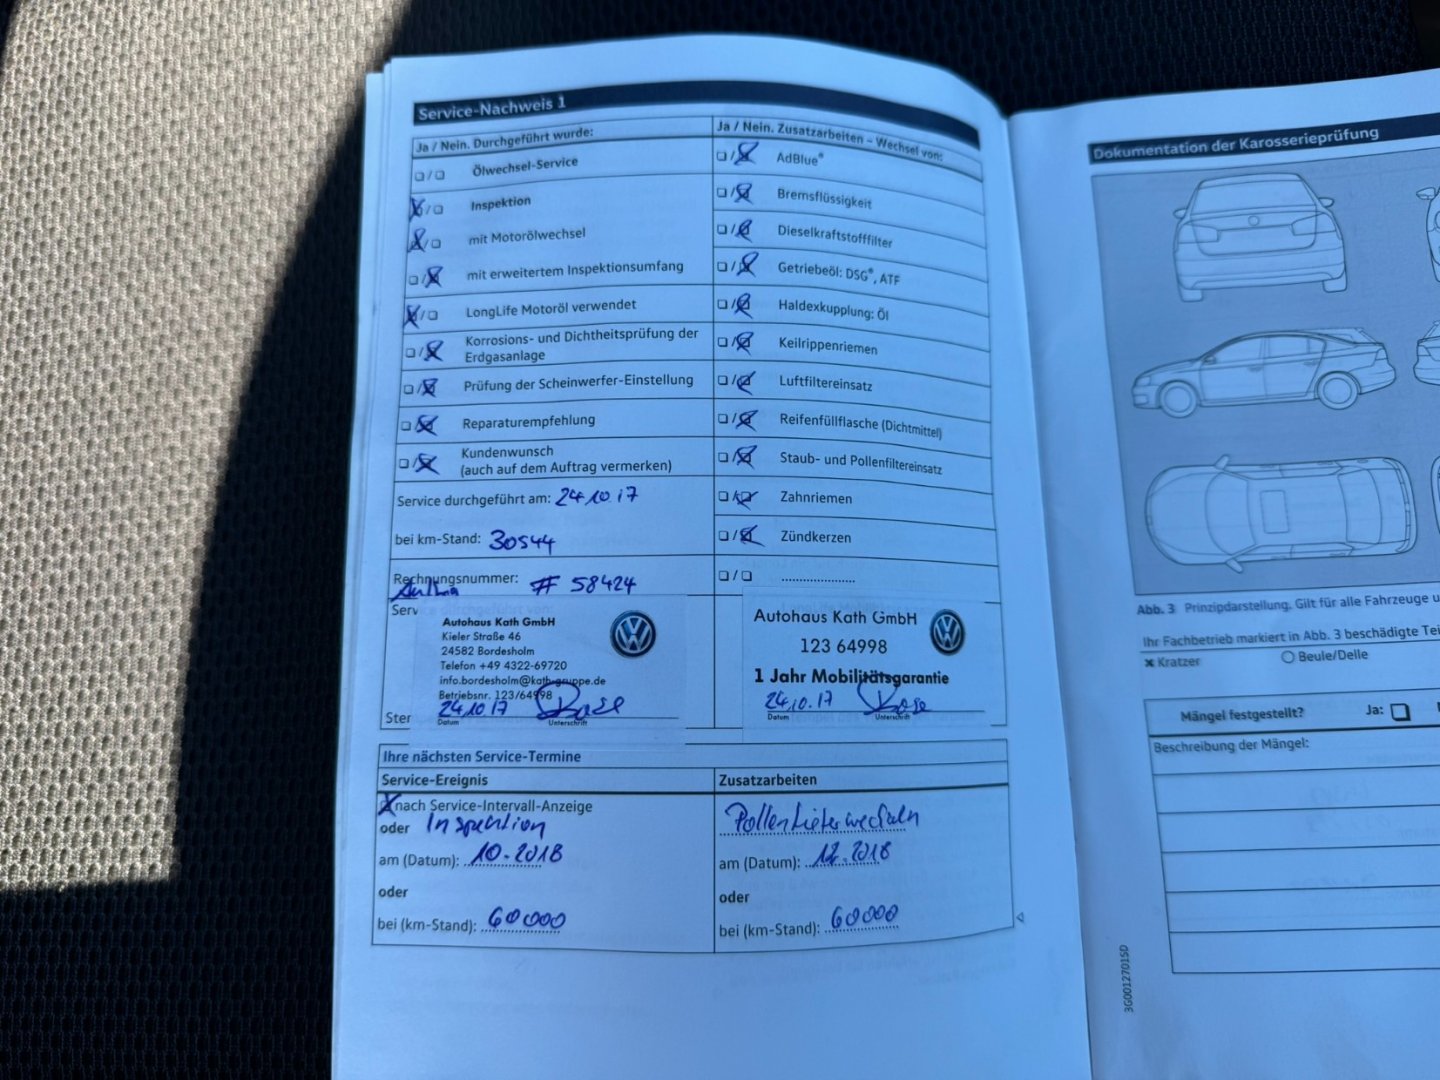 Service-Nachweis 1
Ja / Nein. Durchgeführt wurde:
Ölwechsel-Service
Inspektion
mit Motorölwechsel
mit erweitertem Inspektionsumfang
LongLife Motoröl verwendet
Korrosions- und Dichtheitsprüfung der
Erdgasanlage
Prüfung der Scheinwerfer-Einstellung
Reparaturempfehlung
Kundenwunsch
(auch auf dem Auftrag vermerken)
Service durchgeführt am: 24.10.17
bei km-Stand: 30544
Rechnungsnummer: # 58424
Serv
Autohaus Kath GmbH
Kieler Straße 46
24582 Bordesholm
Telefon +49 4322-69720
info.bordesholm@kath-gruppe.de
Betriebsnr. 123/64998
24.10.17
Datum Unterschrift
Ster
Ja / Nein. Zusatzarbeiten – Wechsel von:
AdBlue®
Bremsflüssigkeit
Dieselkraftstofffilter
Getriebeöl: DSG®, ATF
Haldexkupplung: Öl
Keilrippenriemen
Luftfiltereinsatz
Reifenfüllflasche (Dichtmittel)
Staub- und Pollenfiltereinsatz
Zahnriemen
Zündkerzen
Autohaus Kath GmbH
123 64998
1 Jahr Mobilitätsgarantie
24.10.17
Datum Unterschrift
Ihre nächsten Service-Termine
Service-Ereignis
nach Service-Intervall-Anzeige
oder Inspektion
am (Datum): 10.2018
oder
bei (km-Stand): 60000
Zusatzarbeiten
am (Datum): 12.2018
oder
bei (km-Stand): 60000
Dokumentation der Karosserieprüfung
Abb. 3 Prinzipdarstellung. Gilt für alle Fahrzeuge u
Ihr Fachbetrieb markiert in Abb. 3 beschädigte Tei
Kratzer Beule/Delle
Mängel festgestellt? Ja:
Beschreibung der Mängel:
3G0012701SD